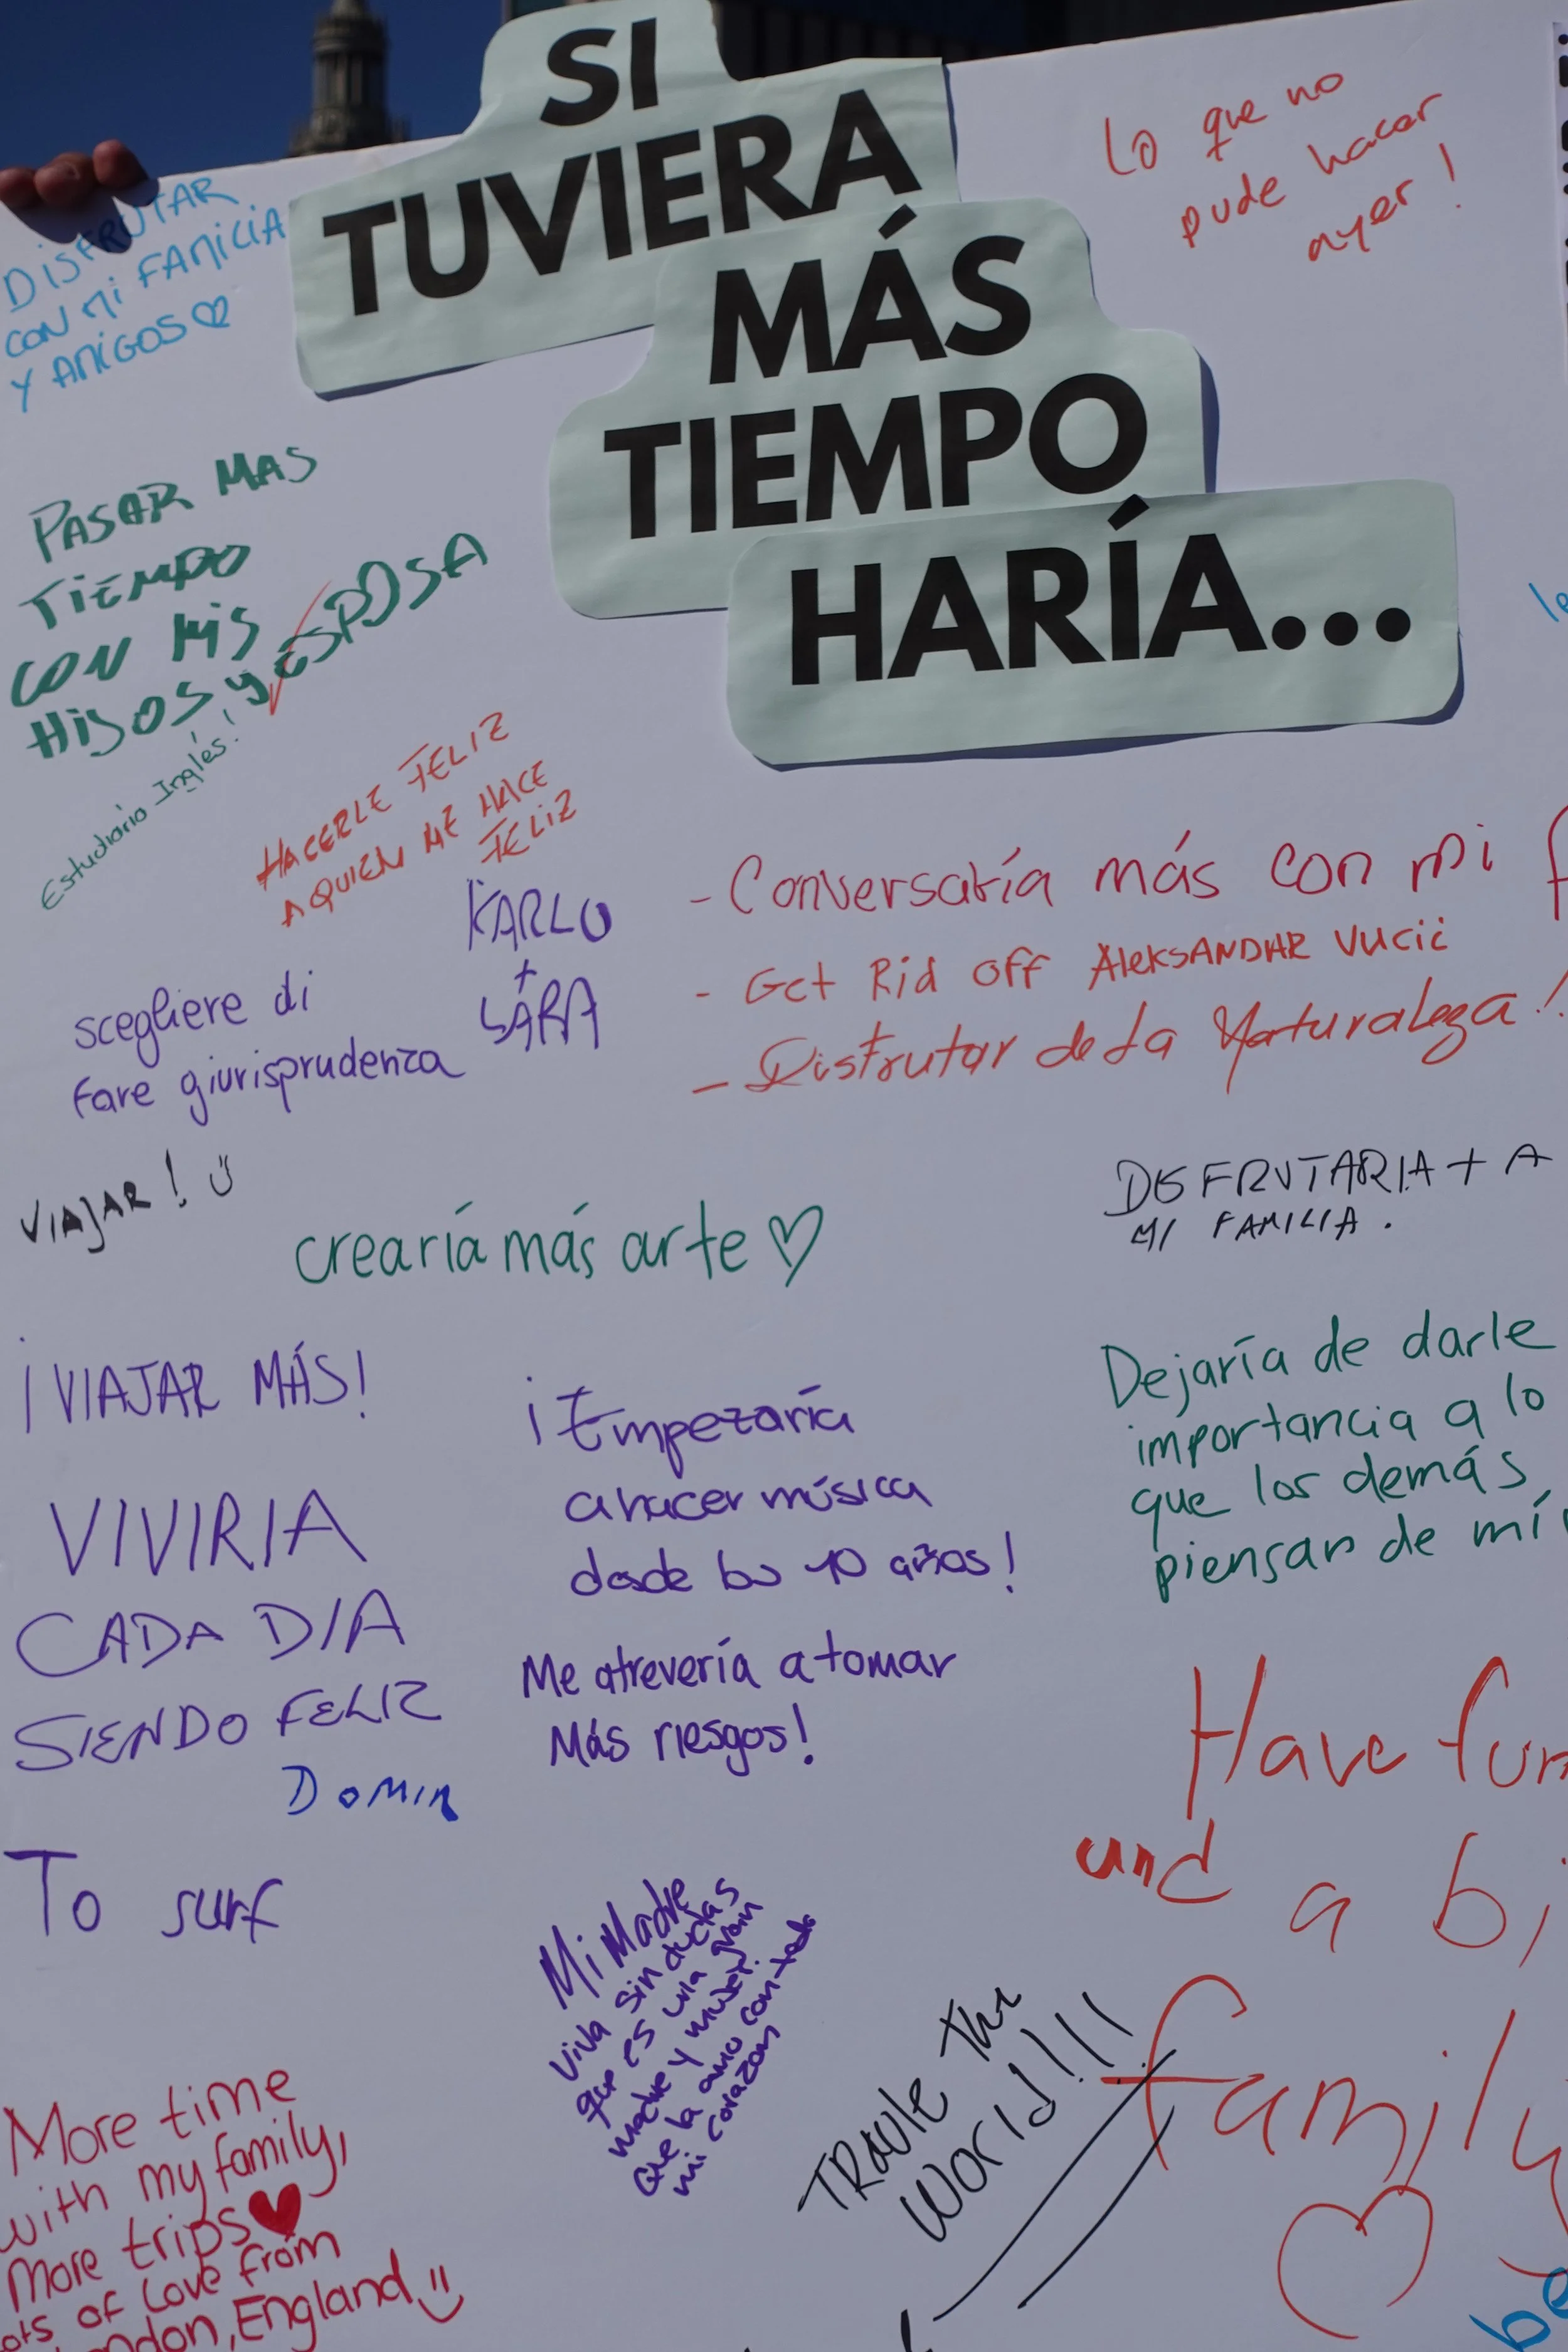 SI
TUVIERA
MÁS
TIEMPO
HARÍA...
Lo que no
pude hacer
ayer!
DISFRUTAR
CON Mi FAMILIA
Y AMIGOS
PASAR MAS
TIEMPO
CON MIS
HIJOS y ESPOSA
Estudiario Inglés!
HACERLE FELIZ
A QUIEN ME HACE
FELIZ
KARLO
+
SARA
- Conversaría más con mi f
- Get Rid off AleksANDAR Vucic
- Disfrutar de la Naturaleza!
scegliere di
fare giurisprudenza
VIAJAR!
crearía más arte
DISFRUTARIA + A
MI FAMILIA.
¡VIAJAR MÁS!
¡Empezaría
a hacer música
desde los 10 años!
Dejaría de darle
importancia a lo
que los demás
piensan de mí
VIVIRIA
CADA DIA
SIENDO FELIZ
DOMIN
Me atrevería a tomar
Más riesgos!
Have fun
and a bi
family
To surf
Mi Madre
Viva sin dudas
que es una gran
madre y mujer.
Que la amo con todo
mi corazon
TRAVLE the
World!!!
More time
with my family,
More trips
ots of Love from
ndon, England
be